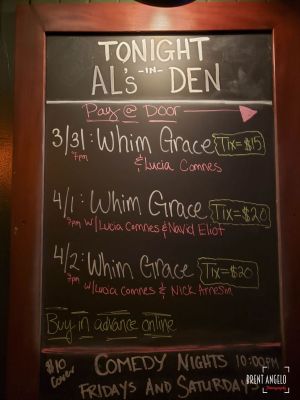 TONIGHT
AL's -IN- DEN
Pay @ Door
3/31: Whim Grace Tix=$15
7pm & Lucia Comnes
4/1: Whim Grace Tix=$20
7pm w/Lucia Comnes & Navid Eliot
4/2: Whim Grace Tix=$20
7pm w/Lucia Comnes & Nick Arneson
Buy in advance online
$10 Cover COMEDY NIGHTS 10:00PM
FRIDAYS AND SATURDAYS
BRENT ANGELO
Photography